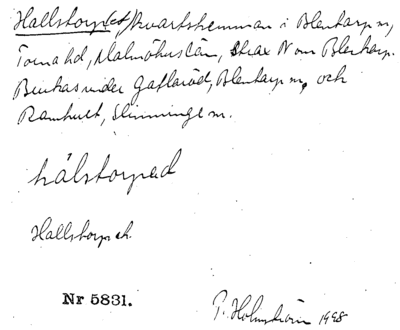 Hallstorp(et), kvartshemman i Blentarp sn,
Torna hd, Malmöhus län, strax N om Blentarp.
Brukas under Gaflaröd, Blentarp sn, och
Ramhult, Slimminge sn.
hálstorpad
Hallstorp ek.
Nr 5831.
P. Holmström 1998